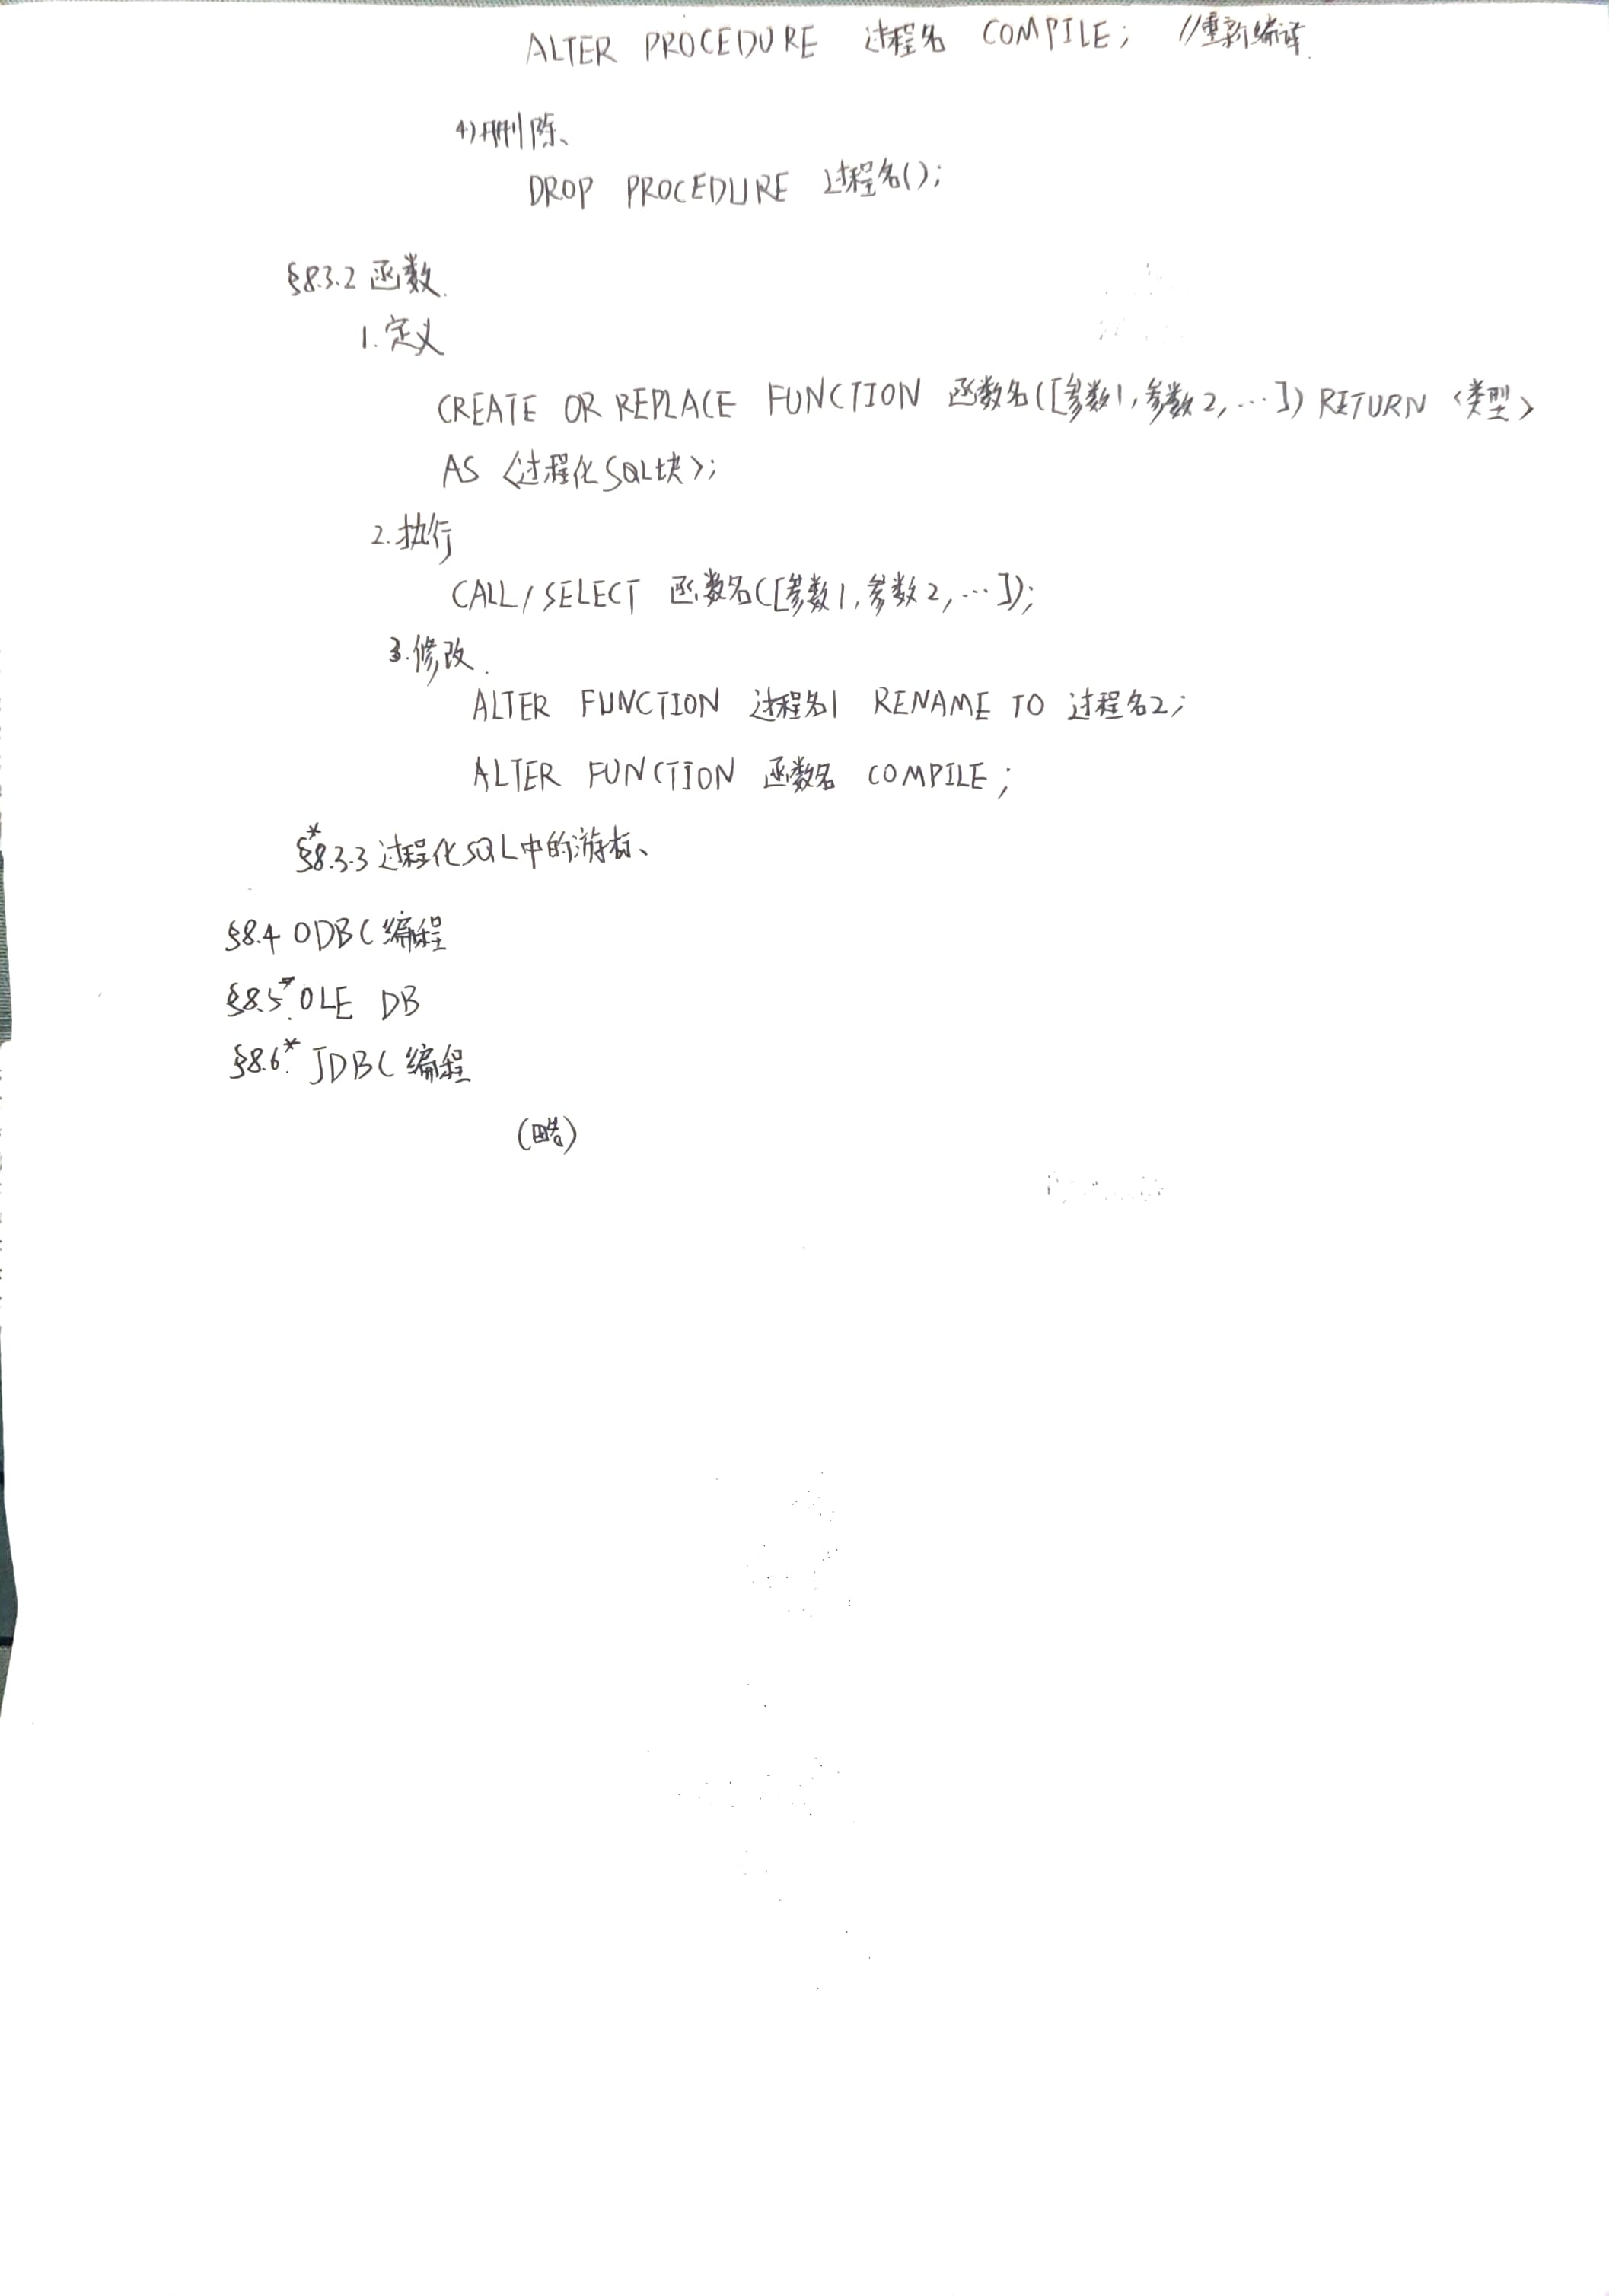 ALTER PROCEDURE 过程名 COMPILE; //重新编译.
4)删除、
DROP PROCEDURE 过程名();
§8.3.2 函数.
1.定义
CREATE OR REPLACE FUNCTION 函数名([参数1,参数2,…]) RETURN <类型>
AS <过程化SQL块>;
2.执行
CALL/SELECT 函数名([参数1,参数2,…]);
3.修改.
ALTER FUNCTION 过程名1 RENAME TO 过程名2;
ALTER FUNCTION 函数名 COMPILE;
§8.3.3* 过程化SQL中的游标、
§8.4 ODBC编程
§8.5* OLE DB
§8.6* JDBC编程
(略)